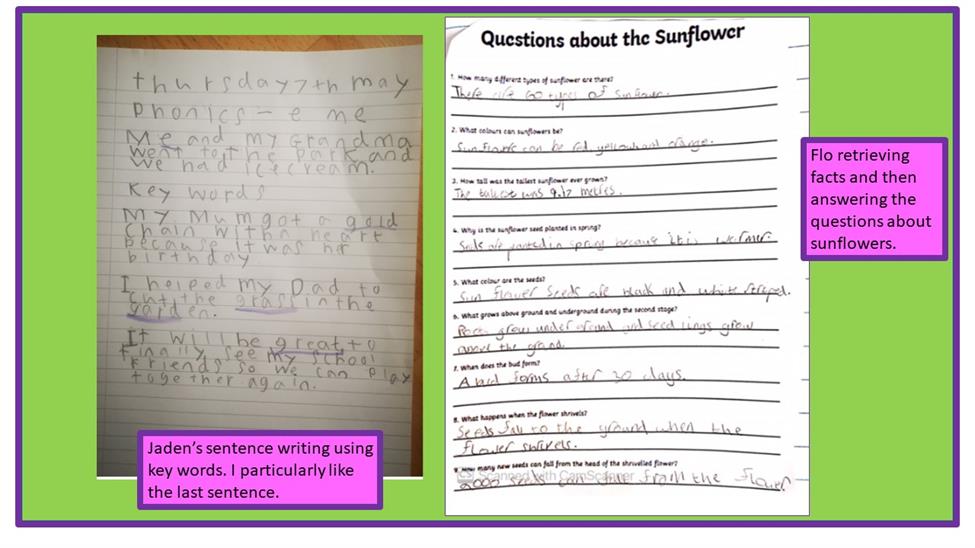 thursday 7th may
Phonics - e me
Me and my Grandma
went to the Park and
we had icecream.
Key words
My Mum got a gold
chain with a heart
because it was her
birthday
I helped my Dad to
cut the grass in the
garden.
It will be great to
finally see my school
friends so we can play
together again.
Jaden's sentence writing using
key words. I particularly like
the last sentence.
Questions about the Sunflower
1. How many different types of sunflower are there?
There are 60 types of sunflower.
2. What colours can sunflowers be?
Sunflowers can be red, yellow and orange.
3. How tall was the tallest sunflower ever grown?
The tallest was 9.17 metres.
4. Why is the sunflower seed planted in spring?
Seeds are planted in spring because it is warmer.
5. What colour are the seeds?
Sun flower seeds are black and white striped.
6. What grows above ground and underground during the second stage?
grow under ground and seed lings grow
above the
7. When does the bud form?
A bud forms after 30 days.
8. What happens when the flower shrivels?
Seeds fall to the ground when the
flower shrivels.
9. How many new seeds can fall from the head of the shrivelled flower?
2000 seeds can fall from the flower
CS Scanned with CamScanner
Flo retrieving
facts and then
answering the
questions about
sunflowers.